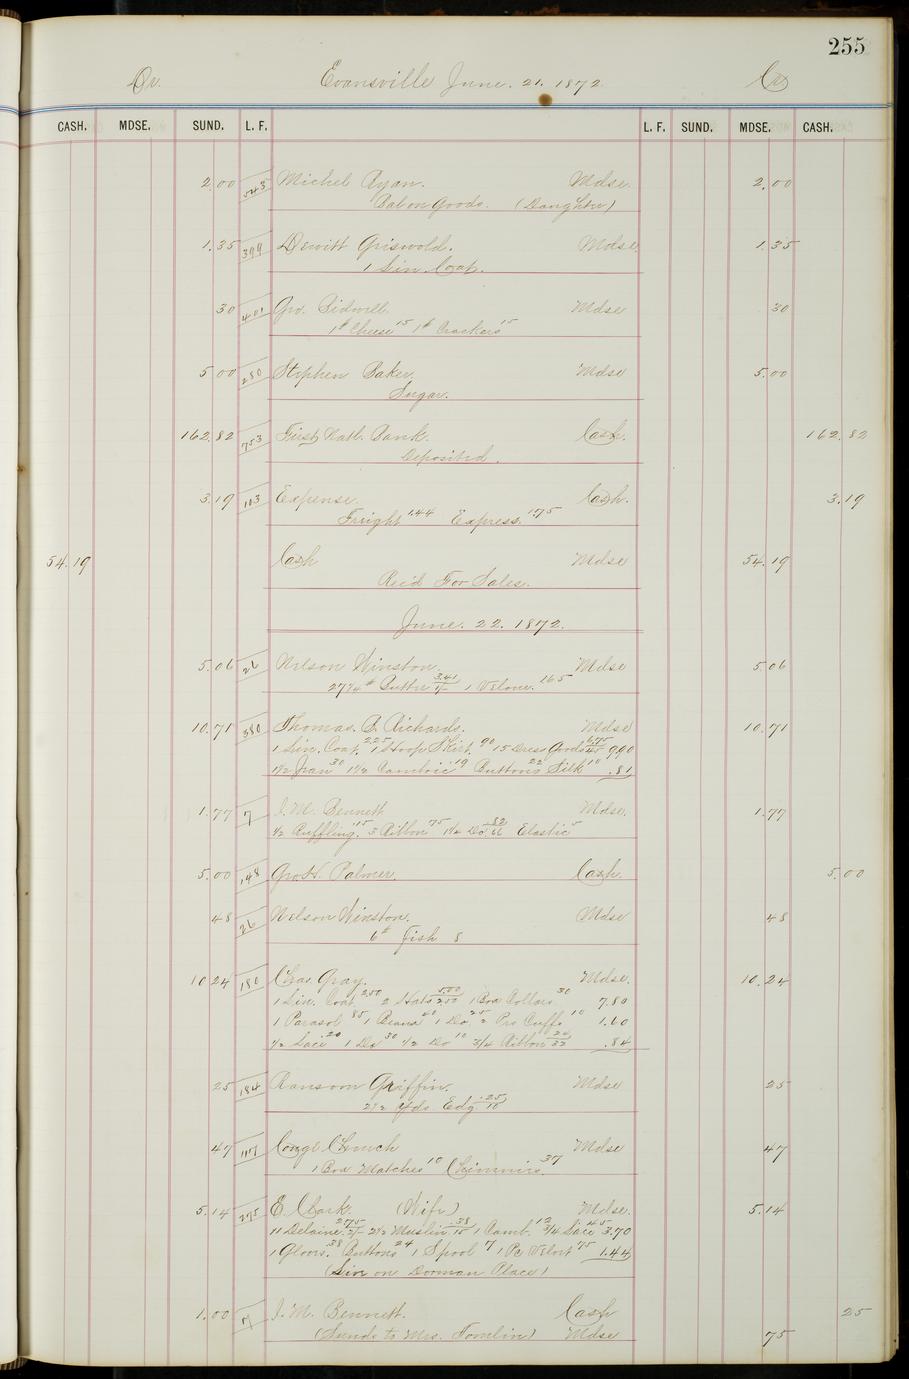 255
Dr. Evansville June. 21. 1872. Cr
CASH. MDSE. SUND. L. F. L. F. SUND. MDSE. CASH.
2.00 543 Michel Ryan. Mdse. 2.00
Bal on Goods. (Daughter)
1.35 399 Dewitt Griswold. Mdse. 1.35
1 Lin. Coat.
30 401 Geo. Bidwell. Mdse 30
1# Cheese 15 1# Crackers 15
5 00 250 Stephen Baker. Mdse 5.00
Sugar.
162.82 753 First Natl. Bank. Cash. 162.82
Deposited.
3.19 103 Expense. Cash. 3.19
Freight 1.44 Express. 1.75
54.19 Cash Mdse 54.19
Rec'd For Sales.
June. 22. 1872.
5.06 26 Nelson Winston. Mdse 5.06
27 1/4 # Butter 3.41 1 165
10.71 380 Thomas. B. Richards. Mdse 10.71
1 Lin. Coat. 2.25 1 Hoop Skirt. 90 15 Dress Goods 6.75/45 9.90
1 1/2 Jean 30 1 1/2 Cambric 19 Buttons 22 Silk 10 .81
1.77 7 J. M. Bennett Mdse. 1.77
1/2 Ruffling. 15 3 Ribbon 75 1 1/4 Do. 82/66 Elastic 5
5.00 148 Geo H. Palmer. Cash. 5.00
48 26 Nelson Winston. Mdse 48
6# Fish 8
10 24 180 Chas. Gray. Mdse. 10.24
1 Lin. Coat 2.50 2 Hats 5.00/2.50 1 Box Collars 30 7.80
1 Parasol 85 1 40 1 Do. 25 2 Prs Cuffs 10 1.60
1/2 Lace .20 1 Do 30 1/2 Do 10 3/4 Ribbon 24/32 .84
25 184 Ransom Griffin. Mdse 25
2 1/2 Yds. Edg. .25/10
47 117 Church Mdse 47
1 Box Matches 10 Chimnies. 37
5.14 275 E. Clark. (Wife) Mdse. 5.14
11 Delaine 2.75/25 2 1/2 Muslin .38/15 1 Camb. 12 3/4 Lace 45 3.70
1 Gloves. 38 Buttons 24 1 Spool 7 1 Pc Velvet 75 1.44
(Live on Dorman Place)
1.00 7 J. M. Bennett. Cash 25
(Sunds to Mrs. Tomlin) Mdse 75